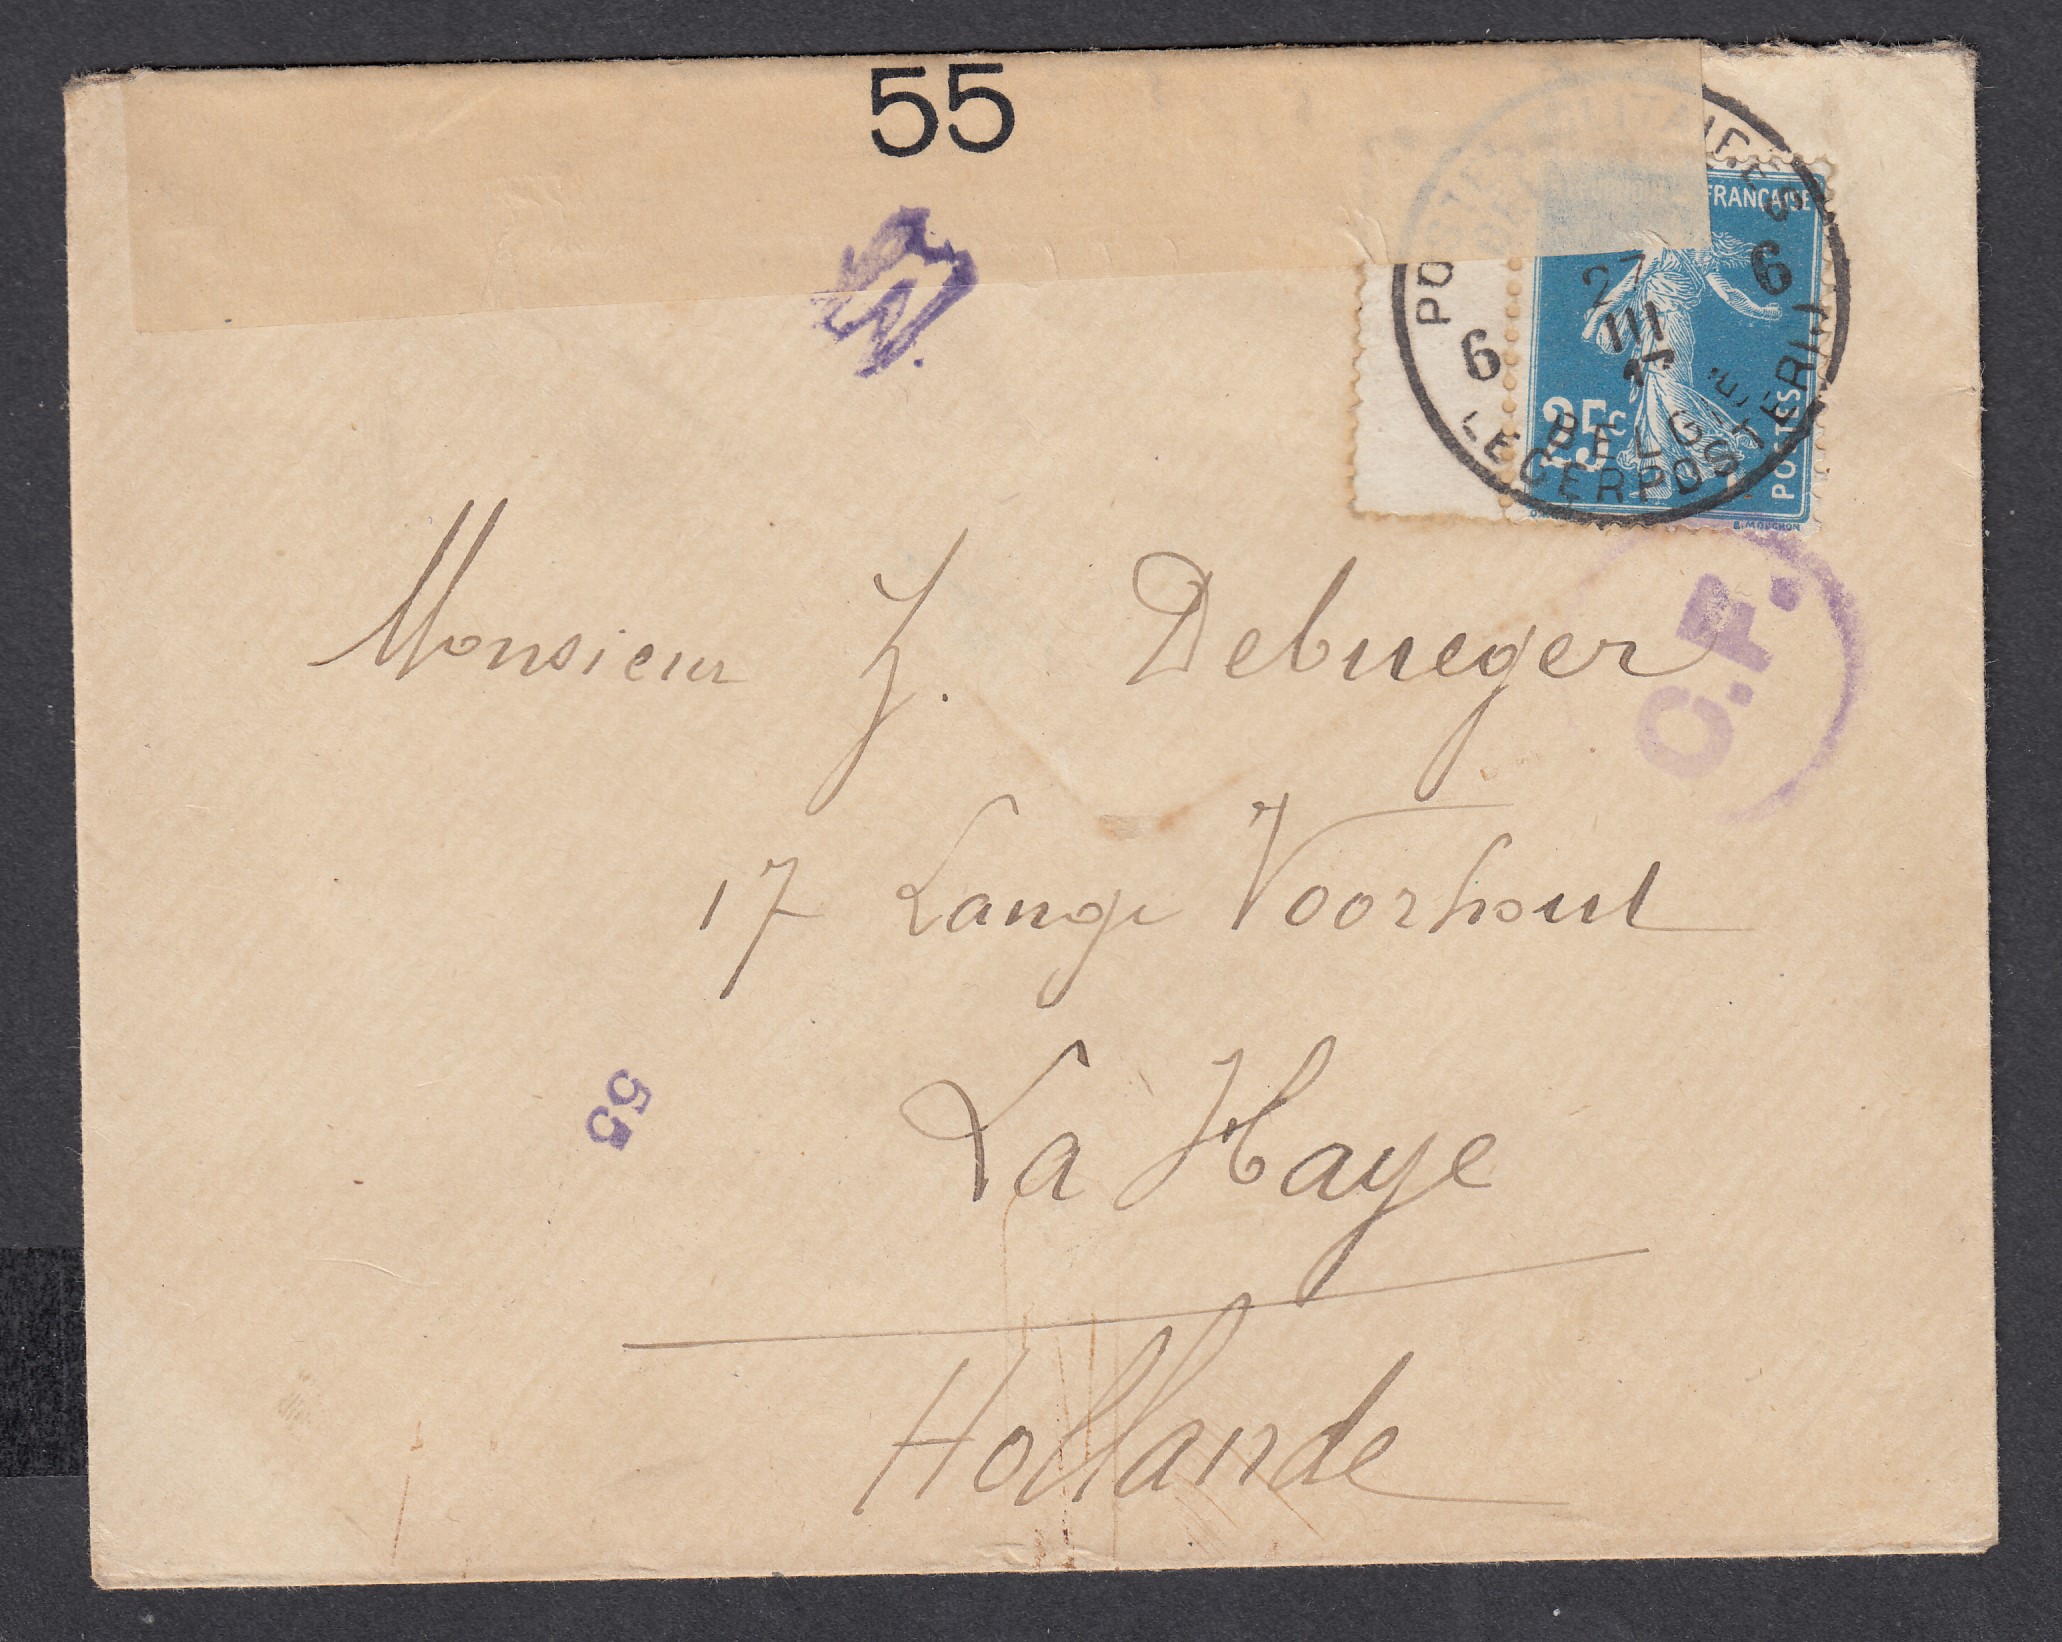 55
FRANÇAISE
POSTES MILITAIRES
6 27 6
III
BELGIQUE
LEGERPOSTERIJ
25c
POSTES
E. MOUCHON
C.F.
Monsieur J. Debueger
17 Lange Voorhout
55
La Haye
Hollande